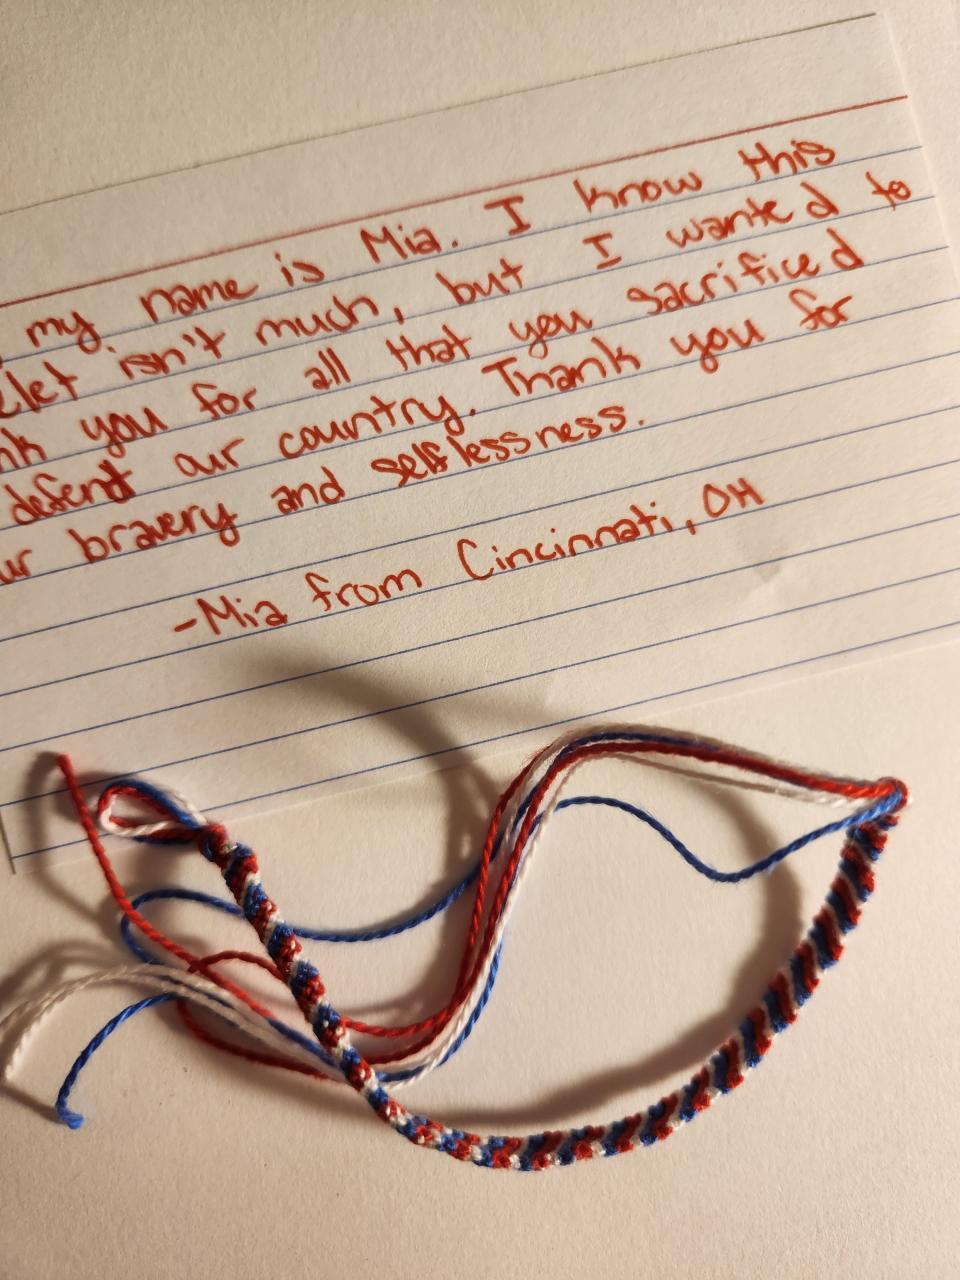 my name is Mia. I know this
isn't much, but I wanted to
you for all that you sacrificed
defend our country. Thank you for
bravery and selflessness.
-Mia from Cincinnati, OH